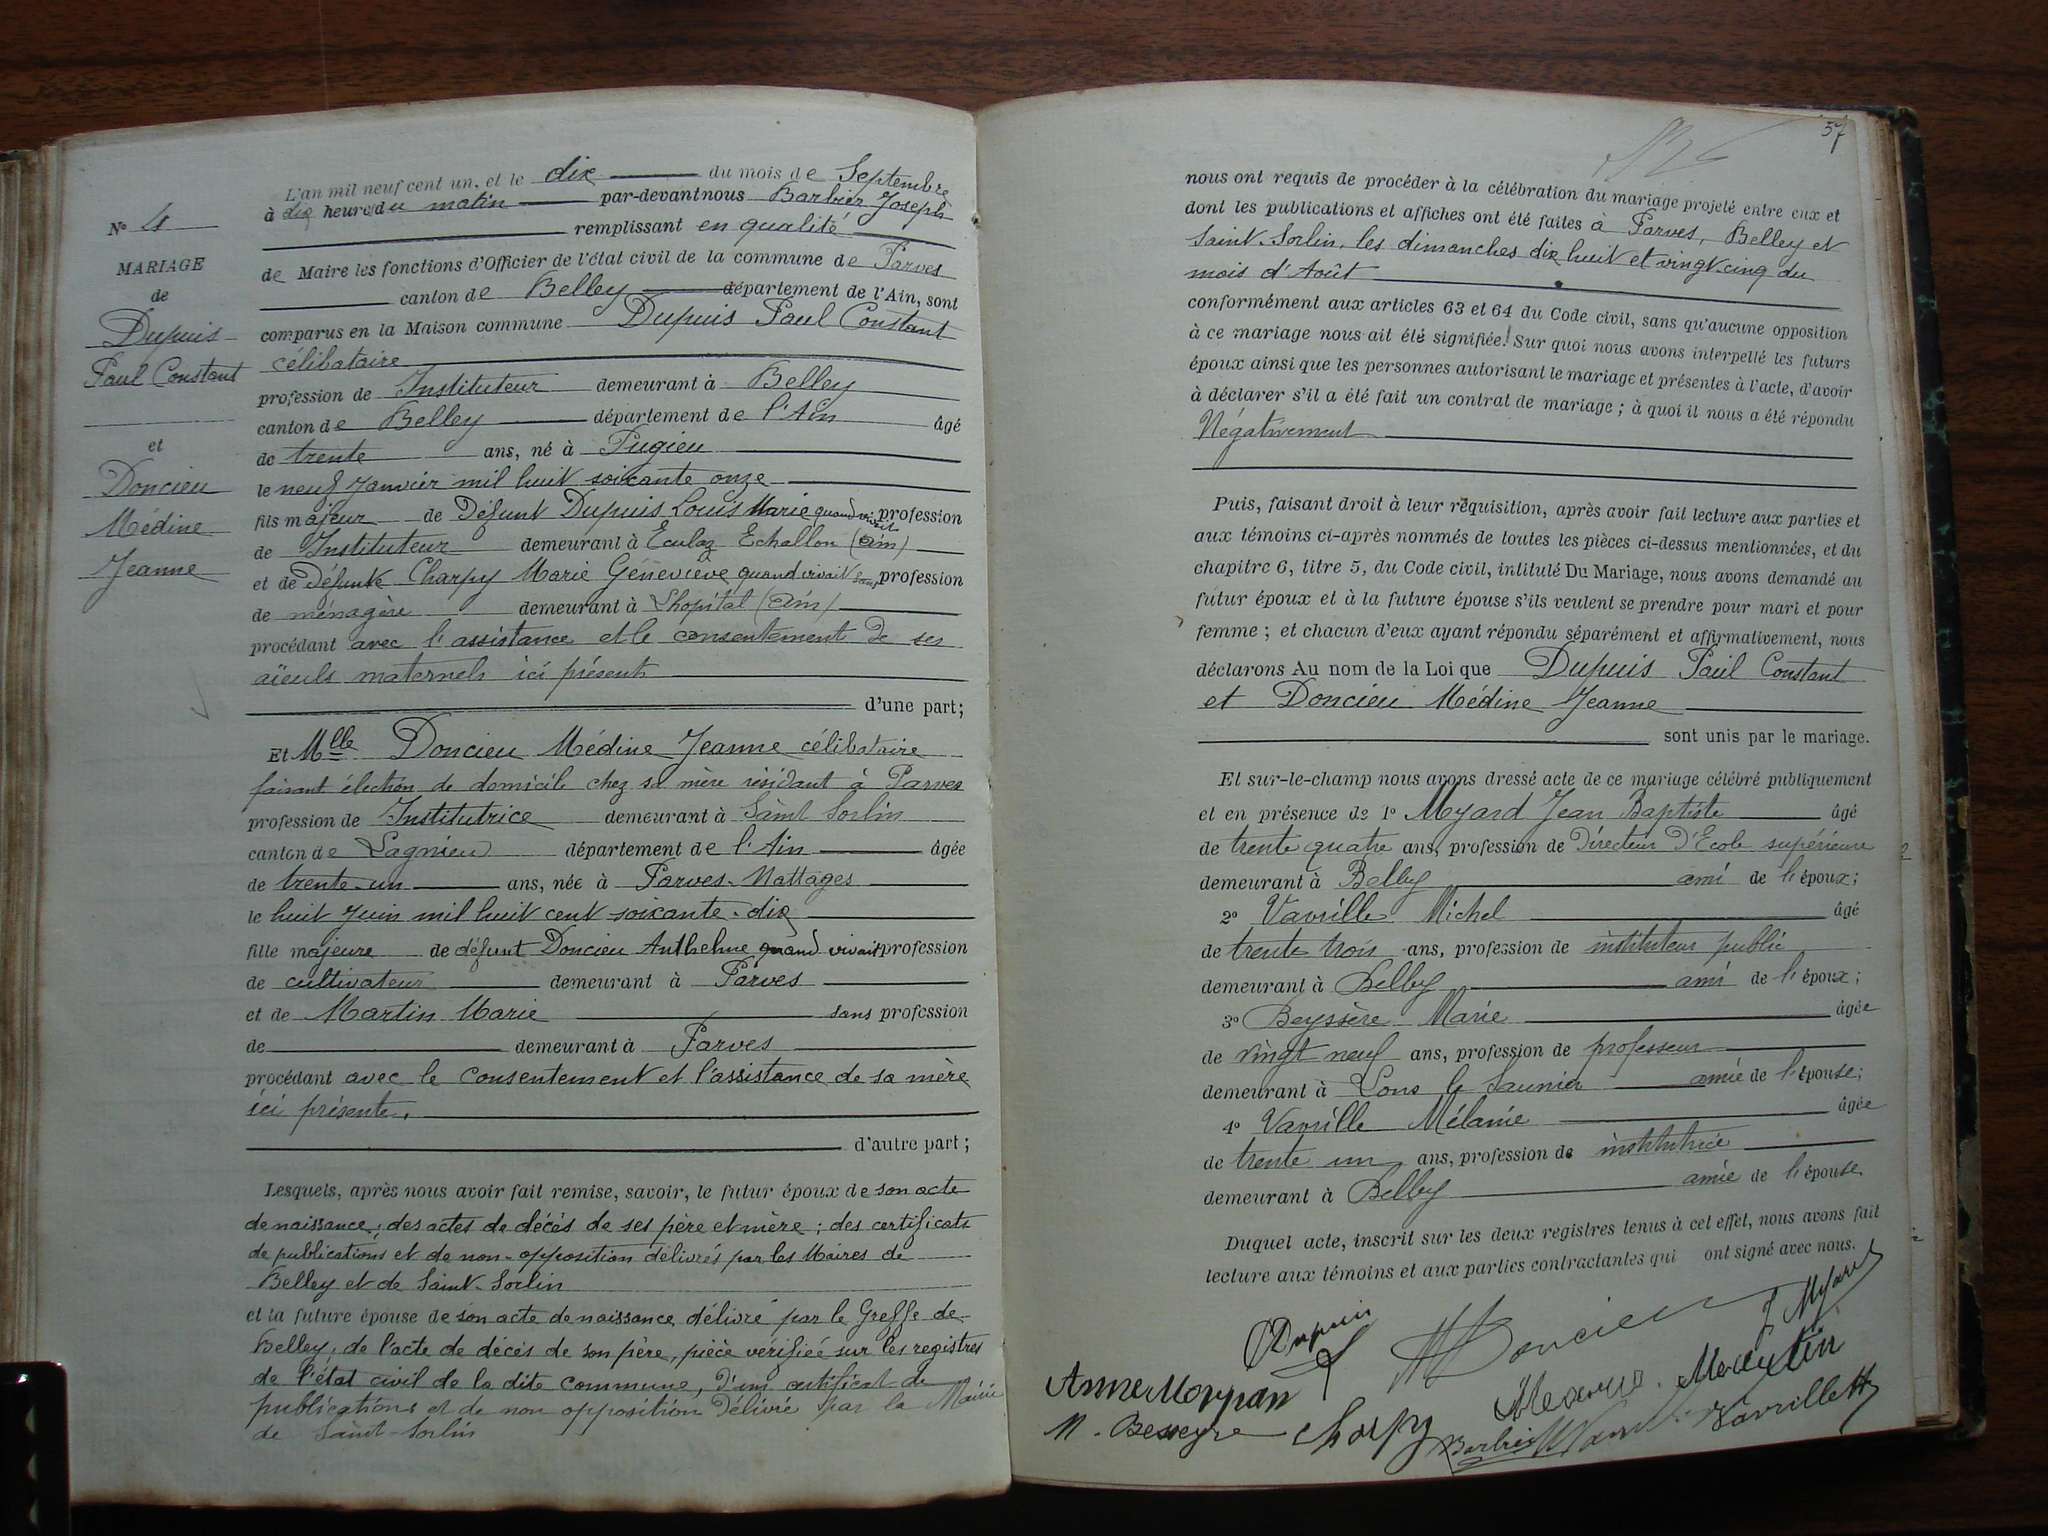 N° 4
MARIAGE
de
Dupuis
Paul Constant
et
Doncieu
Médine
Jeanne
L'an mil neuf cent un, et le dix du mois de Septembre
à dix heures du matin par-devant nous Barbier Joseph
remplissant en qualité
de Maire les fonctions d'Officier de l'état civil de la commune de Parves
canton de Belley département de l'Ain, sont
comparus en la Maison commune Dupuis Paul Constant
célibataire
profession de Instituteur demeurant à Belley
canton de Belley département de l'Ain âgé
de trente ans, né à Pugieu
le neuf Janvier mil huit soixante onze
fils majeur de Défunt Dupuis Louis Marie quand vivait profession
de Instituteur demeurant à Eculaz Echallon (Ain)
et de Défunte Charpy Marie Géneviève quand vivait sans profession
de ménagère demeurant à Lhopital (Ain)
procédant avec l'assistance et le consentement de ses
aïeuls maternels ici présents
d'une part;
Et Mlle Doncieu Médine Jeanne célibataire
faisant élection de domicile chez sa mère résidant à Parves
profession de Institutrice demeurant à Saint Sorlin
canton de Lagnieu département de l'Ain âgée
de trente-un ans, née à Parves-Nattages
le huit Juin mil huit cent soixante-dix
fille majeure de défunt Doncieu Anthelme quand vivait profession
de cultivateur demeurant à Parves
et de Martin Marie sans profession
de demeurant à Parves
procédant avec le consentement et l'assistance de sa mère
ici présente.
d'autre part;
Lesquels, après nous avoir fait remise, savoir, le futur époux de son acte
de naissance; des actes de décès de ses père et mère; des certificats
de publications et de non-opposition délivrés par les Maires de
Belley et de Saint-Sorlin
et la future épouse de son acte de naissance délivré par le Greffe de
Belley, de l'acte de décès de son père, pièce vérifiée sur les registres
de l'état civil de la dite commune, d'un certificat de
publications et de non opposition délivré par la Mairie
de Saint-Sorlin
57
nous ont requis de procéder à la célébration du mariage projeté entre eux et
dont les publications et affiches ont été faites à Parves, Belley et
Saint-Sorlin, les dimanches dix huit et vingt-cinq du
mois d'Août
conformément aux articles 63 et 64 du Code civil, sans qu'aucune opposition
à ce mariage nous ait été signifiée! Sur quoi nous avons interpellé les futurs
époux ainsi que les personnes autorisant le mariage et présentes à l'acte, d'avoir
à déclarer s'il a été fait un contrat de mariage; à quoi il nous a été répondu
Négativement
Puis, faisant droit à leur réquisition, après avoir fait lecture aux parties et
aux témoins ci-après nommés de toutes les pièces ci-dessus mentionnées, et du
chapitre 6, titre 5, du Code civil, intitulé Du Mariage, nous avons demandé au
futur époux et à la future épouse s'ils veulent se prendre pour mari et pour
femme; et chacun d'eux ayant répondu séparément et affirmativement, nous
déclarons Au nom de la Loi que Dupuis Paul Constant
et Doncieu Médine Jeanne
sont unis par le mariage.
Et sur-le-champ nous avons dressé acte de ce mariage célébré publiquement
et en présence de 1° Myard Jean Baptiste âgé
de trente quatre ans, profession de Directeur d'Ecole supérieure
demeurant à Belley ami de l'époux;
2° Vavrille Michel âgé
de trente trois ans, profession de instituteur public
demeurant à Belley ami de l'époux;
3° Beyssère Marie âgée
de vingt neuf ans, profession de professeur
demeurant à Lons le Saunier amie de l'épouse;
4° Vavrille Mélanie âgée
de trente un ans, profession de institutrice
demeurant à Belley amie de l'épouse
Duquel acte, inscrit sur les deux registres tenus à cet effet, nous avons fait
lecture aux témoins et aux parties contractantes qui ont signé avec nous.
Dupuis
M Doncieu
J Myard
Anne
Martin
Charpy
Barbier
Vavrille M